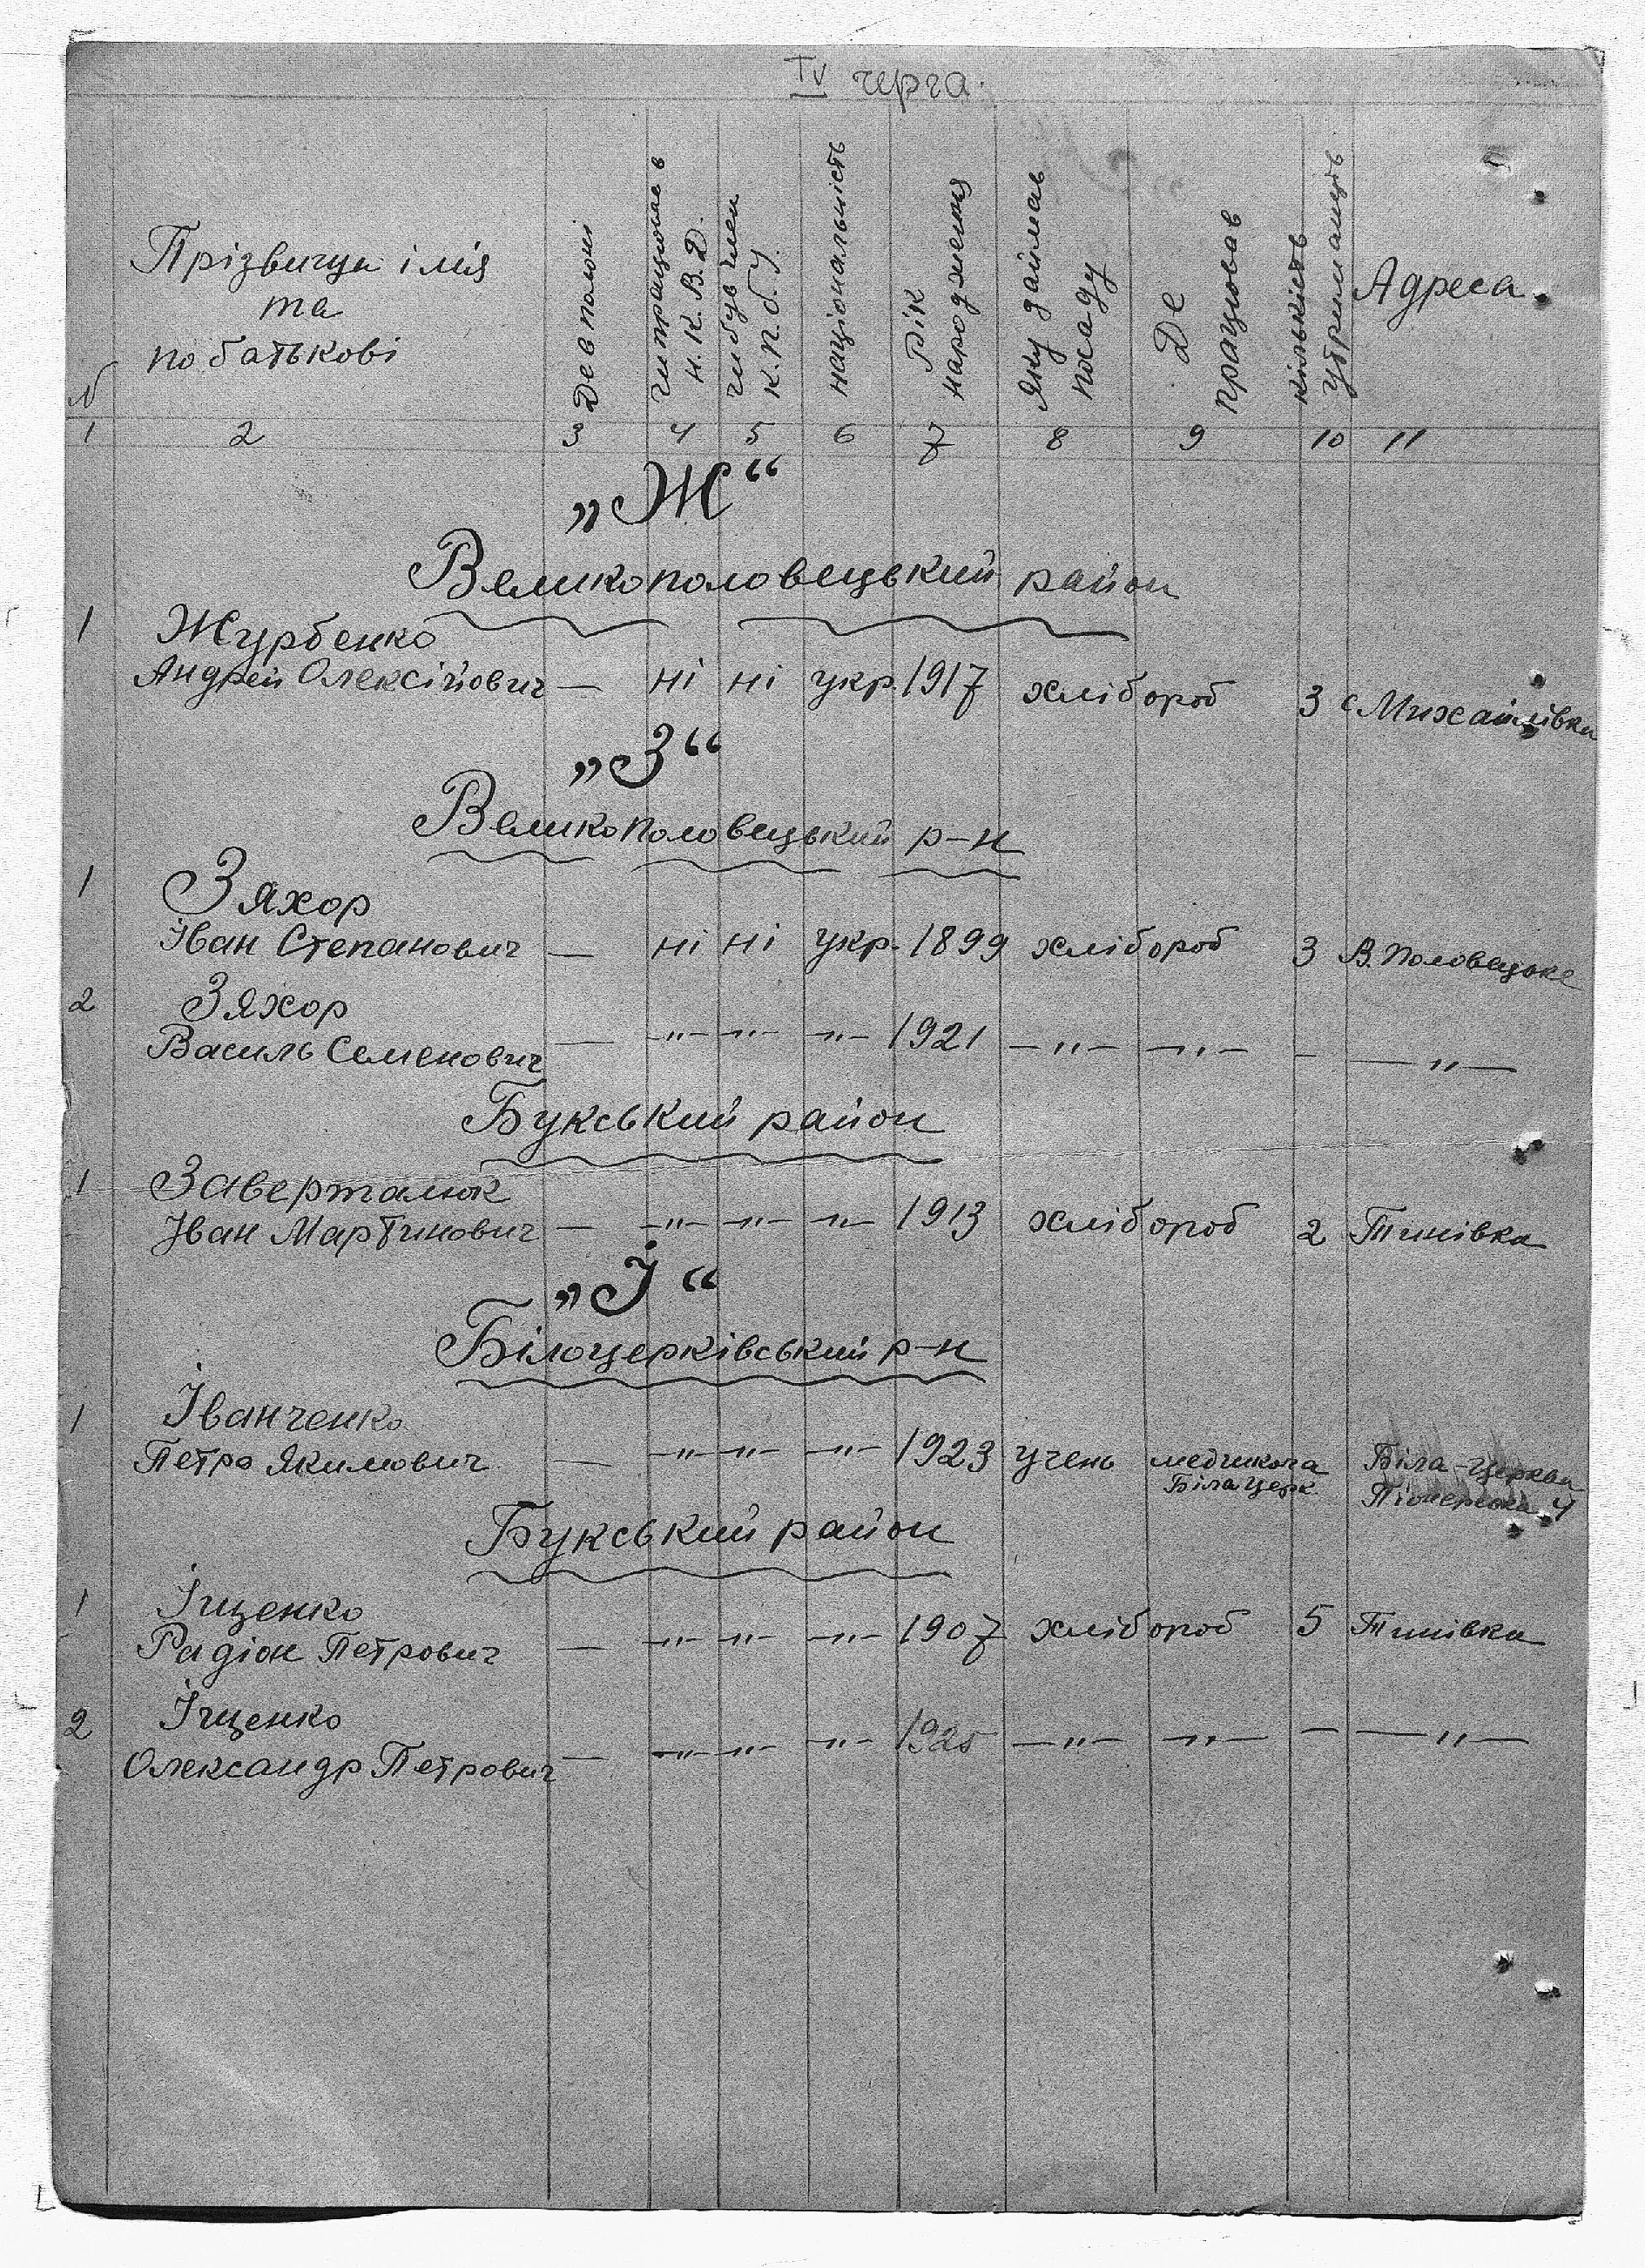 IV черга.
N
Прізвище імя
та
по батькові
Де в полоні
чи працював в
Н. К. В. Д.
чи був член
К. П. б. У.
національність
Рік
народження
Яку займав
посаду
Де
працював
кількість
утриманців
Адреса
1 2 3 4 5 6 7 8 9 10 11
„Ж“
Великополовецький район
1 Журбенко
Андрей Олексійович — ні ні укр. 1917 хлібороб 3 с Михайлівка
„З“
Великополовецький р-н
1 Зяхор
Іван Степанович — ні ні укр. 1899 хлібороб 3 В. Половецьке
2 Зяхор
Василь Семенович — -"- -"- -"- 1921 -"- -"- - -"-
Букський район
1 Заверталюк
Іван Мартинович — -"- -"- -"- 1913 хлібороб 2 Тинівка
„І“
Білоцерківський р-н
1 Іванченко
Петро Якимович — -"- -"- -"- 1923 учень медшкола Біла-Церква
Біла Церк. Піонерська 4
Букський район
1 Іщенко
Радіон Петрович — -"- -"- -"- 1907 хлібороб 5 Тинівка
2 Іщенко
Олександр Петрович — -"- -"- -"- 1925 -"- -"- - -"-